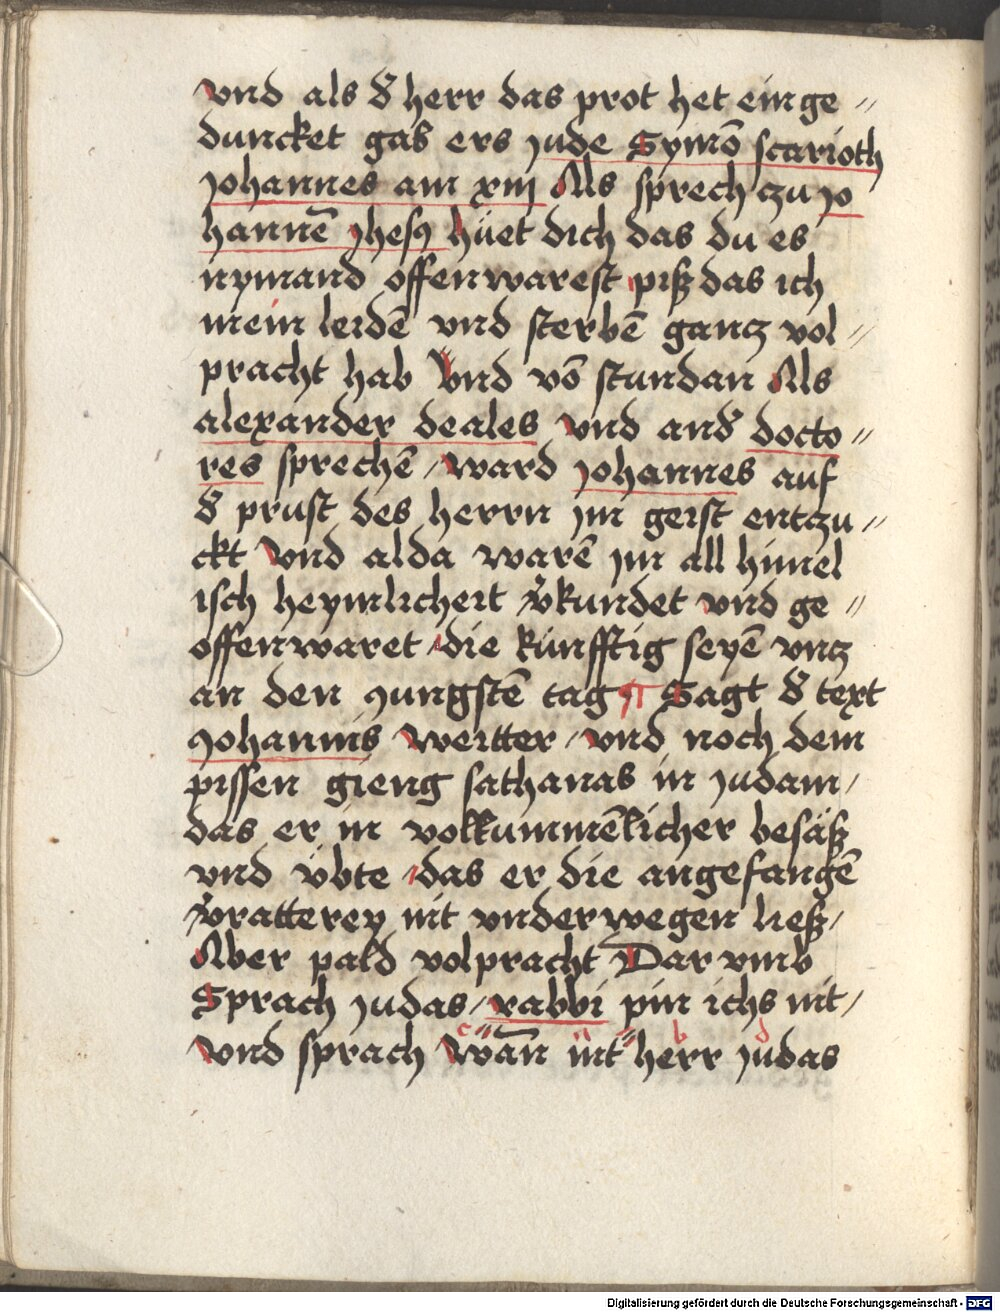 vnd als d̕ herr das prot het ein ge〃
duncket gab ers jude Symō scarioth
johannes am xiij Als sprech czu jo
hannē jhesꝯ hüet dich das du es
nymand offenwarest piß das ich
mein leidē vnd sterbē gancz vol〃
pracht hab Vnd vō stundan Als
alexander deales vnd and̕ docto〃
res sprechē / ward johannes auf
d̕ prust des herrn jm geist entczu〃
ckt vnd alda warē jm all himel
isch heymlicheit v̕kundet vnd ge〃
offenwaret / die künfftig seyē vncz
an den jungstē tag ¶ Sagt d̕ text
johannis weitter / vnd noch dem
pissen gieng sathanas in judam /
das er in volkummēlicher besäß
vnd übte / das er die angefangē
v̕ratterey nit vnderwegen ließ /
Aber pald volpracht Dar vmb
Sprach judas / rabbi pin ichs nit /
vnd sprach wān nit herr judas
Digitalisierung gefördert durch die Deutsche Forschungsgemeinschaft - DFG